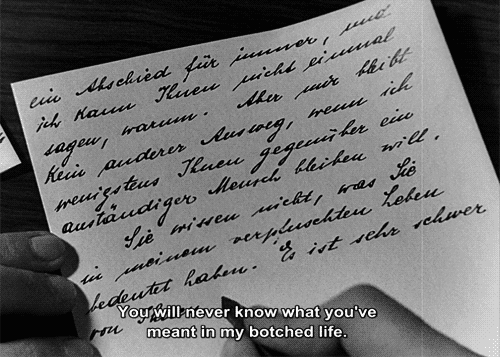 ein Abschied für immer, und
ich kann Ihnen nicht einmal
sagen, warum. Aber mir bleibt
kein anderer Ausweg, wenn ich
wenigstens Ihnen gegenüber ein
anständiger Mensch bleiben will.
Sie wissen nicht, was Sie
in meinem verpfuschten Leben
bedeutet haben. Es ist sehr schwer
von
You will never know what you've
meant in my botched life.